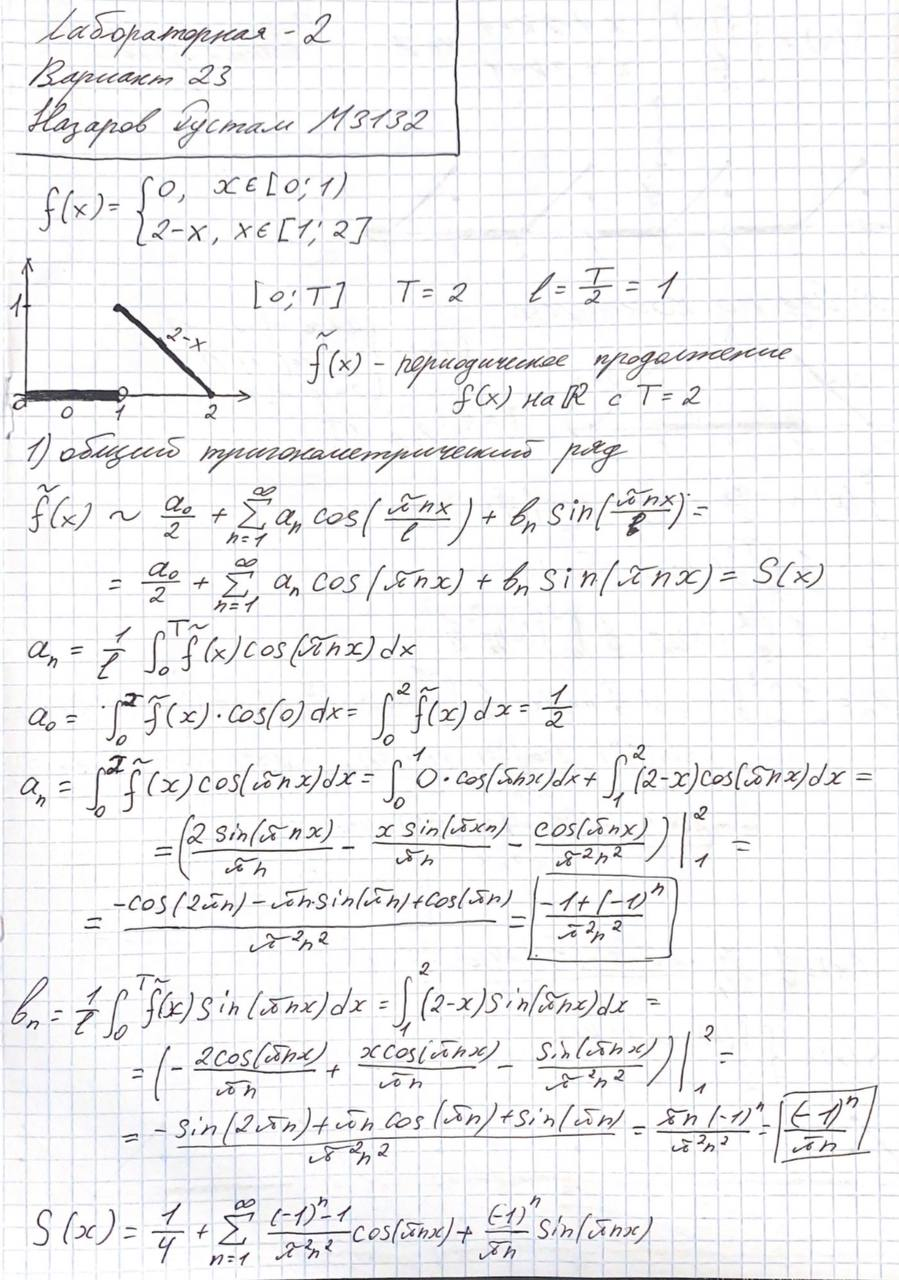 Лабораторная - 2
Вариант 23
Назаров Рустам М3132
f(x) = { 0, x ∈ [0; 1)
2-x, x ∈ [1; 2]
[0; T] T = 2 l = T/2 = 1
1
2-x
0 1 2
f̃(x) - периодическое продолжение
f(x) на ℝ с T = 2
1) общий тригонометрический ряд
f̃(x) ~ a₀/2 + ∑_{n=1}^{∞} aₙ cos(πnx/l) + bₙ sin(πnx/l) =
= a₀/2 + ∑_{n=1}^{∞} aₙ cos(πnx) + bₙ sin(πnx) = S(x)
aₙ = 1/l ∫₀ᵀ f̃(x) cos(πnx) dx
a₀ = ∫₀² f̃(x) · cos(0) dx = ∫₀² f̃(x) dx = 1/2
aₙ = ∫₀² f̃(x) cos(πnx) dx = ∫₀¹ 0 · cos(πnx) dx + ∫₁² (2-x) cos(πnx) dx =
= (2 sin(πnx)/πn - x sin(πxn)/πn - cos(πnx)/π²n²) |₁² =
= (-cos(2πn) - πn sin(πn) + cos(πn))/π²n² = (-1 + (-1)ⁿ)/π²n²
bₙ = 1/l ∫₀ᵀ f̃(x) sin(πnx) dx = ∫₁² (2-x) sin(πnx) dx =
= (- 2cos(πnx)/πn + x cos(πnx)/πn - sin(πnx)/π²n²) |₁² =
= (-sin(2πn) + πn cos(πn) + sin(πn))/π²n² = πn (-1)ⁿ/π²n² = (-1)ⁿ/πn
S(x) = 1/4 + ∑_{n=1}^{∞} ((-1)ⁿ-1)/π²n² cos(πnx) + (-1)ⁿ/πn sin(πnx)